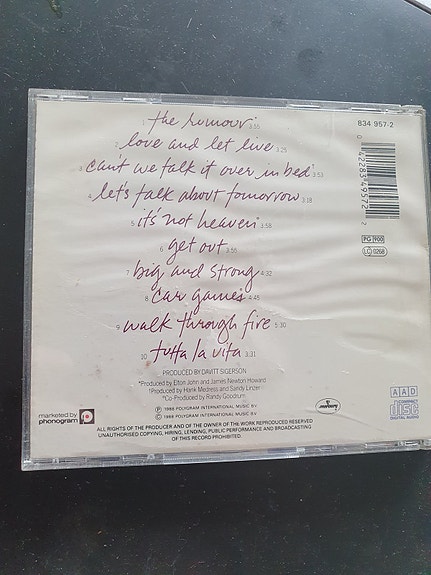 1 the rumour* 3:55
834 957-2
2 love and let live 3:25
3 can't we talk it over in bed† 3:53
4 let's talk about tomorrow 3:18
5 it's not heaven° 3:58
6 get out 3:55
7 big and strong 4:32
8 car games 4:45
9 walk through fire 5:30
10 tutta la vita 3:31
0 42283 49572 2
PG 900
LC 0268
PRODUCED BY DAVITT SIGERSON
*Produced by Elton John and James Newton Howard
†Produced by Hank Medress and Sandy Linzer
°Co-Produced by Randy Goodrum
marketed by
phonogram
mercury
AAD
COMPACT
disc
DIGITAL AUDIO
Ⓟ 1988 POLYGRAM INTERNATIONAL MUSIC B.V.
© 1988 POLYGRAM INTERNATIONAL MUSIC B.V.
ALL RIGHTS OF THE PRODUCER AND OF THE OWNER OF THE WORK REPRODUCED RESERVED
UNAUTHORISED COPYING, HIRING, LENDING, PUBLIC PERFORMANCE AND BROADCASTING
OF THIS RECORD PROHIBITED.